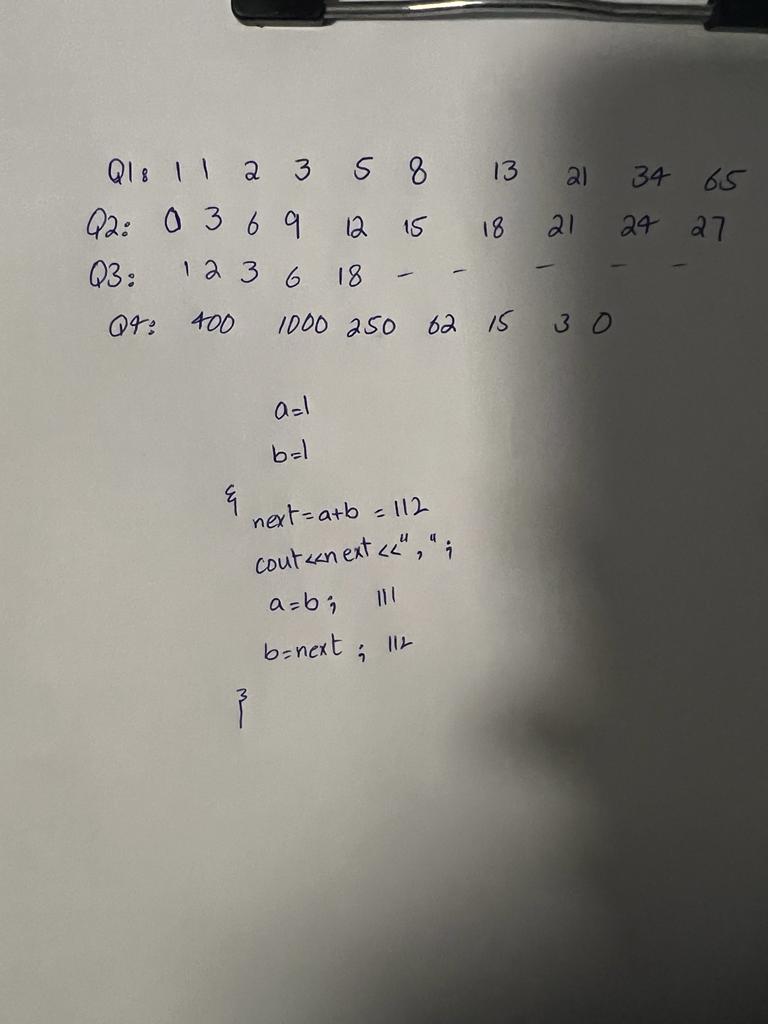 Q1: 1 1 2 3 5 8 13 21 34 65
Q2: 0 3 6 9 12 15 18 21 24 27
Q3: 1 2 3 6 18 - - - - -
Q4: 400 1000 250 62 15 3 0
a=1
b=1
{
next=a+b = //2
cout<<next<<",";
a=b; //1
b=next; //2
}